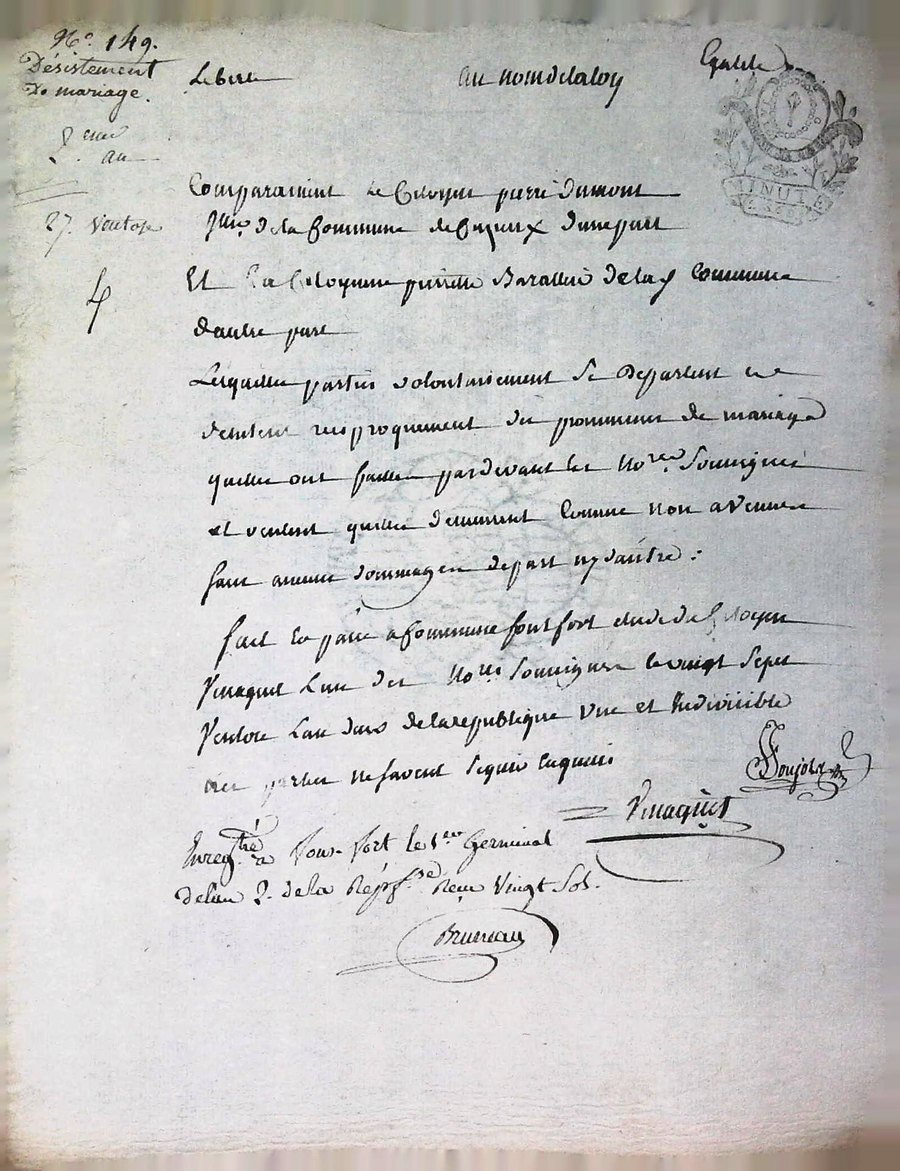 No. 149.
Désistement
De mariage.
Liberté au nom de la loy Egalité
2. eme
an
MINUTE
27. Ventose
Comparoissent le Citoyen pierre dumont
de la Commune de Cazeux d'une part
4
Et La Citoyenne Barallie de la Commune
d'autre part
Lesquelles parties volontairement se Departent
reciproquement des promesses de mariage
quelles ont faittes pardevant les Nores Soussignés
et veulent quelles demeurent Comme non avenues
sans aucuns dommages de part ny d'autre :
fait en la Commune font fort du Citoyen
Vinaquet L'un des Nores Soussignes le vingt Sept
Ventose L'an deus de la republique Une et Indivisible
les parties ne savent Signer
Soujola
Vinaquet
Enregtré a Fons-Fort le 1er Germinal
de l'an 2. de la Repse Reçu Vingt Sols.
Bruneau